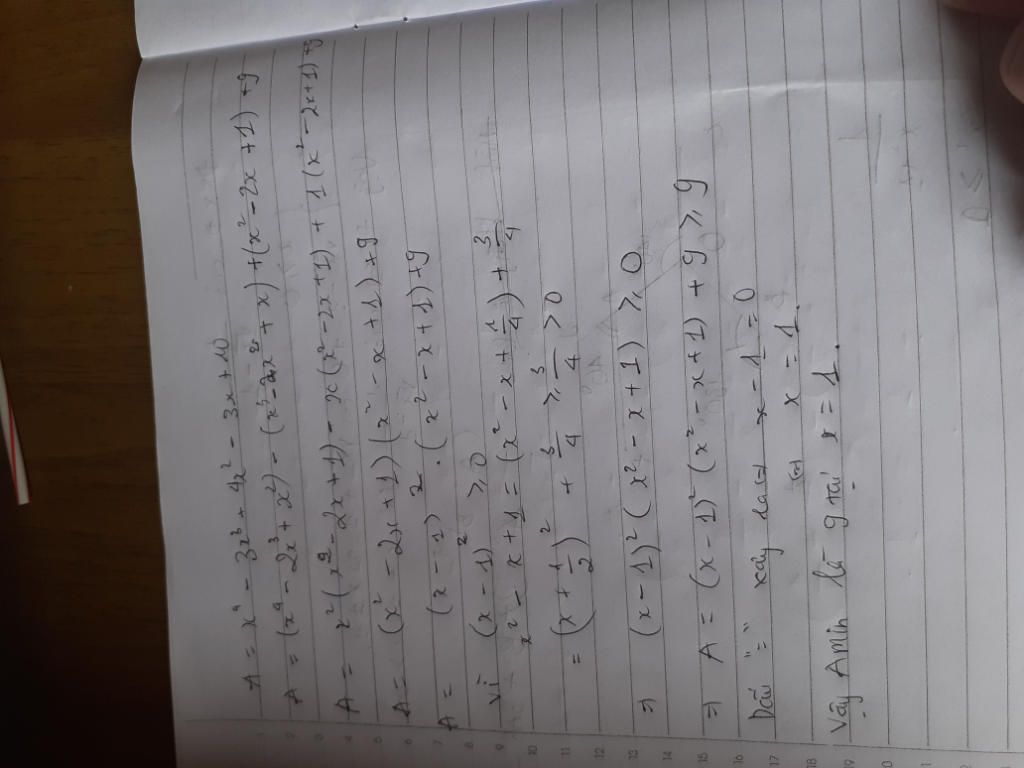 A = x⁴ - 3x³ + 4x² - 3x + 10
A = (x⁴ - 2x³ + x²) - (x³ - 2x² + x) + (x² - 2x + 1) + 9
A = x²(x² - 2x + 1) - x(x² - 2x + 1) + 1(x² - 2x + 1) + 9
A = (x² - 2x + 1)(x² - x + 1) + 9
A = (x - 1)² . (x² - x + 1) + 9
Vì (x - 1)² ≥ 0
x² - x + 1 = (x² - x + 1/4) + 3/4
= (x + 1/2)² + 3/4 ≥ 3/4 > 0
⇒ (x - 1)² (x² - x + 1) ≥ 0
⇒ A = (x - 1)² (x² - x + 1) + 9 ≥ 9
Dấu "=" xảy ra ⇔ x - 1 = 0
⇔ x = 1
Vậy Amin là 9 tại x = 1.
1
2
3
4
5
6
7
8
9
10
11
12
13
14
15
16
17
18
19